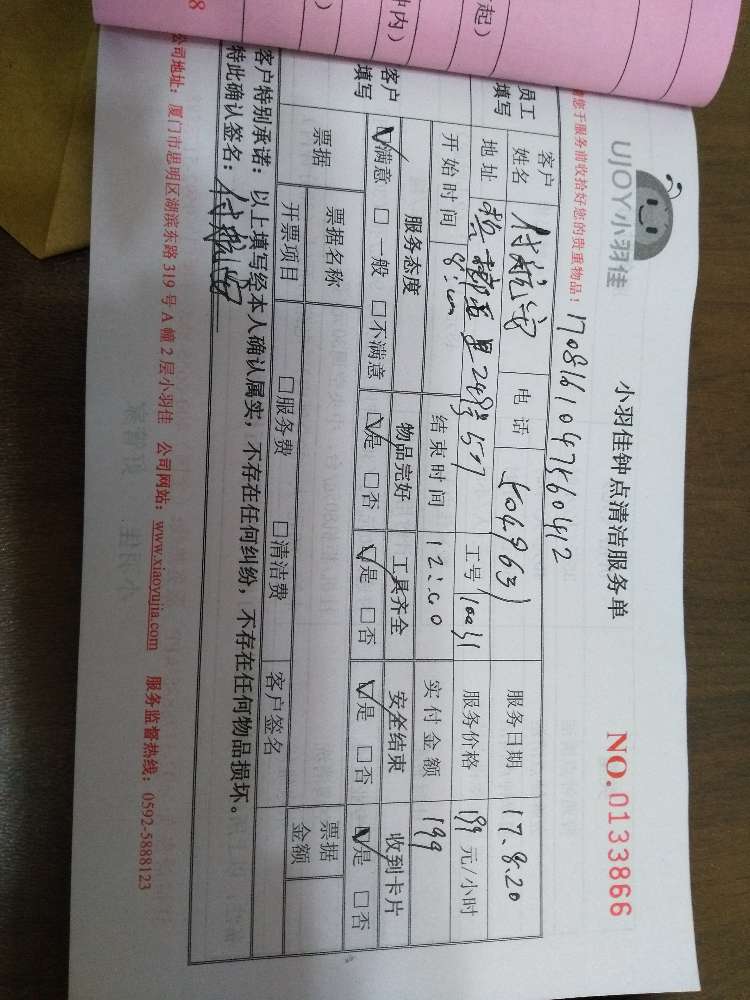 起）
钟内）
）
8
UJOY小羽佳
小羽佳钟点清洁服务单
NO.0133866
您于服务前收拾好您的贵重物品！
1708161047560412
员工填写
客户姓名
电话
5049631
服务日期
17.8.20
地址
工号
服务价格
199 元/小时
开始时间
8:00
结束时间
12:00
实付金额
199
客户填写
服务态度
物品完好
工具齐全
安全结束
收到卡片
☑满意 □一般 □不满意
☑是 □否
☑是 □否
☑是 □否
☑是 □否
票据
票据名称
票据金额
开票项目
□服务费 □清洁费
客户签名
客户特别承诺：以上填写经本人确认属实，不存在任何纠纷，不存在任何物品损坏。
特此确认签名：
公司地址：厦门市思明区湖滨东路 319 号 A 幢 2 层小羽佳 公司网站：www.xiaoyujia.com 服务监督热线：0592-5888123